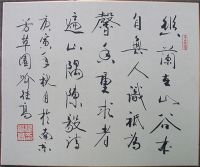 幽蘭在山谷本
自無人識祇為
馨香重求者
遍山隅陳毅詩
庚寅年秋月於南京
芳草園